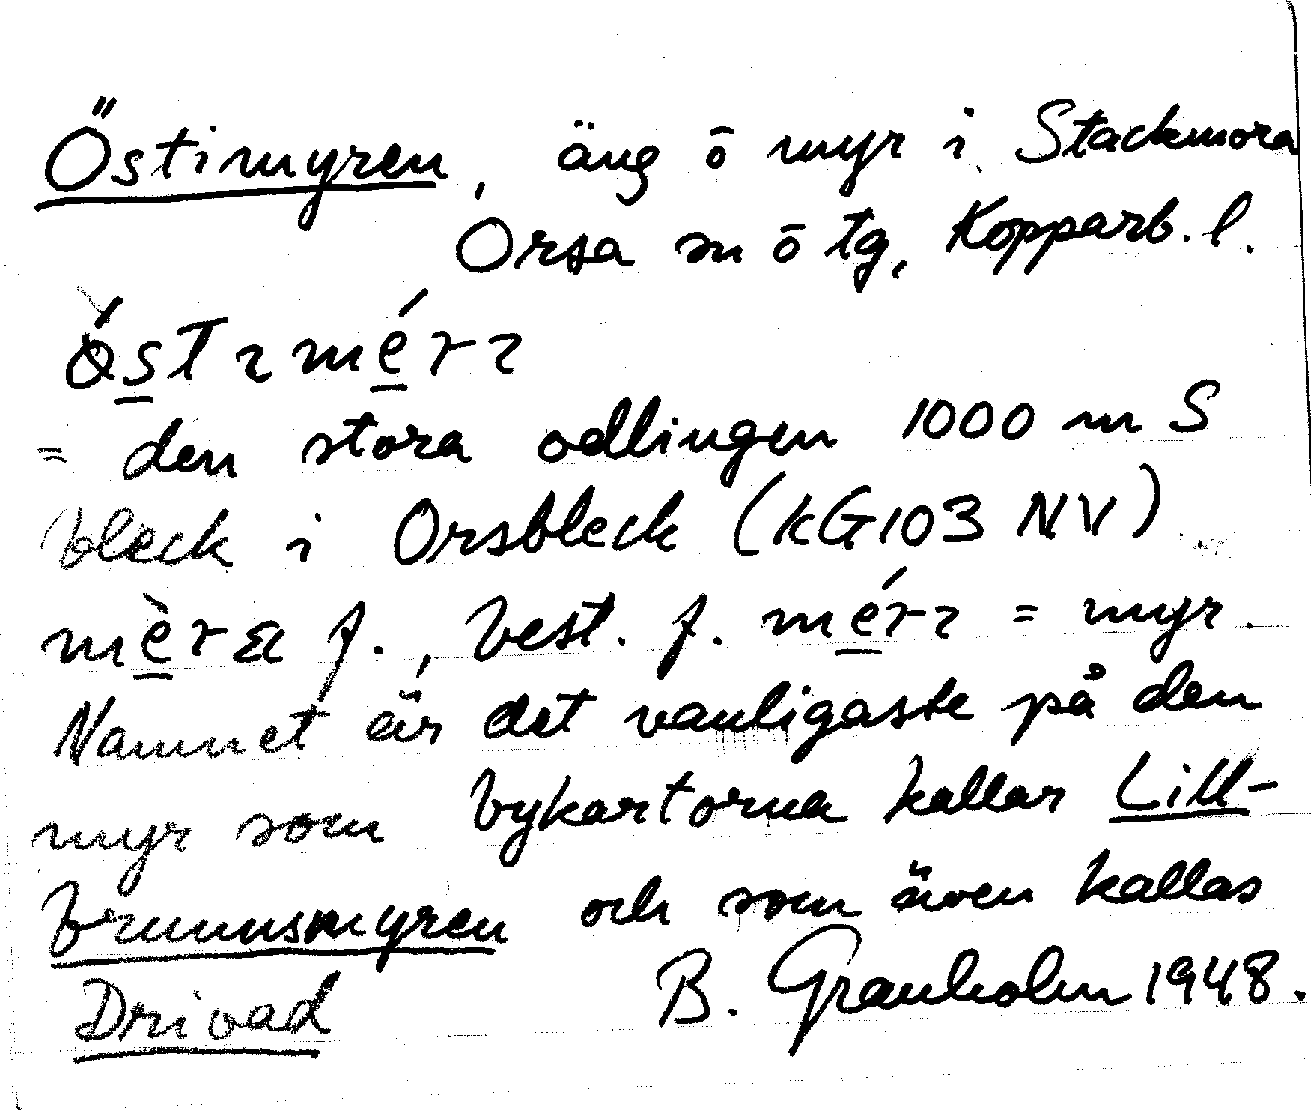 Östimyren, äng ō myr i Stackmora
Orsa sn ō tg, Kopparb. l.
= den stora odlingen 1000 m S
bleck i Orsbleck (kG103 NV)
f., best. f. = myr.
Namnet är det vanligaste på den
myr som bykartorna kallar Lill-
brunnsmyren och som även kallas
Drivad B. Granholm 1948.